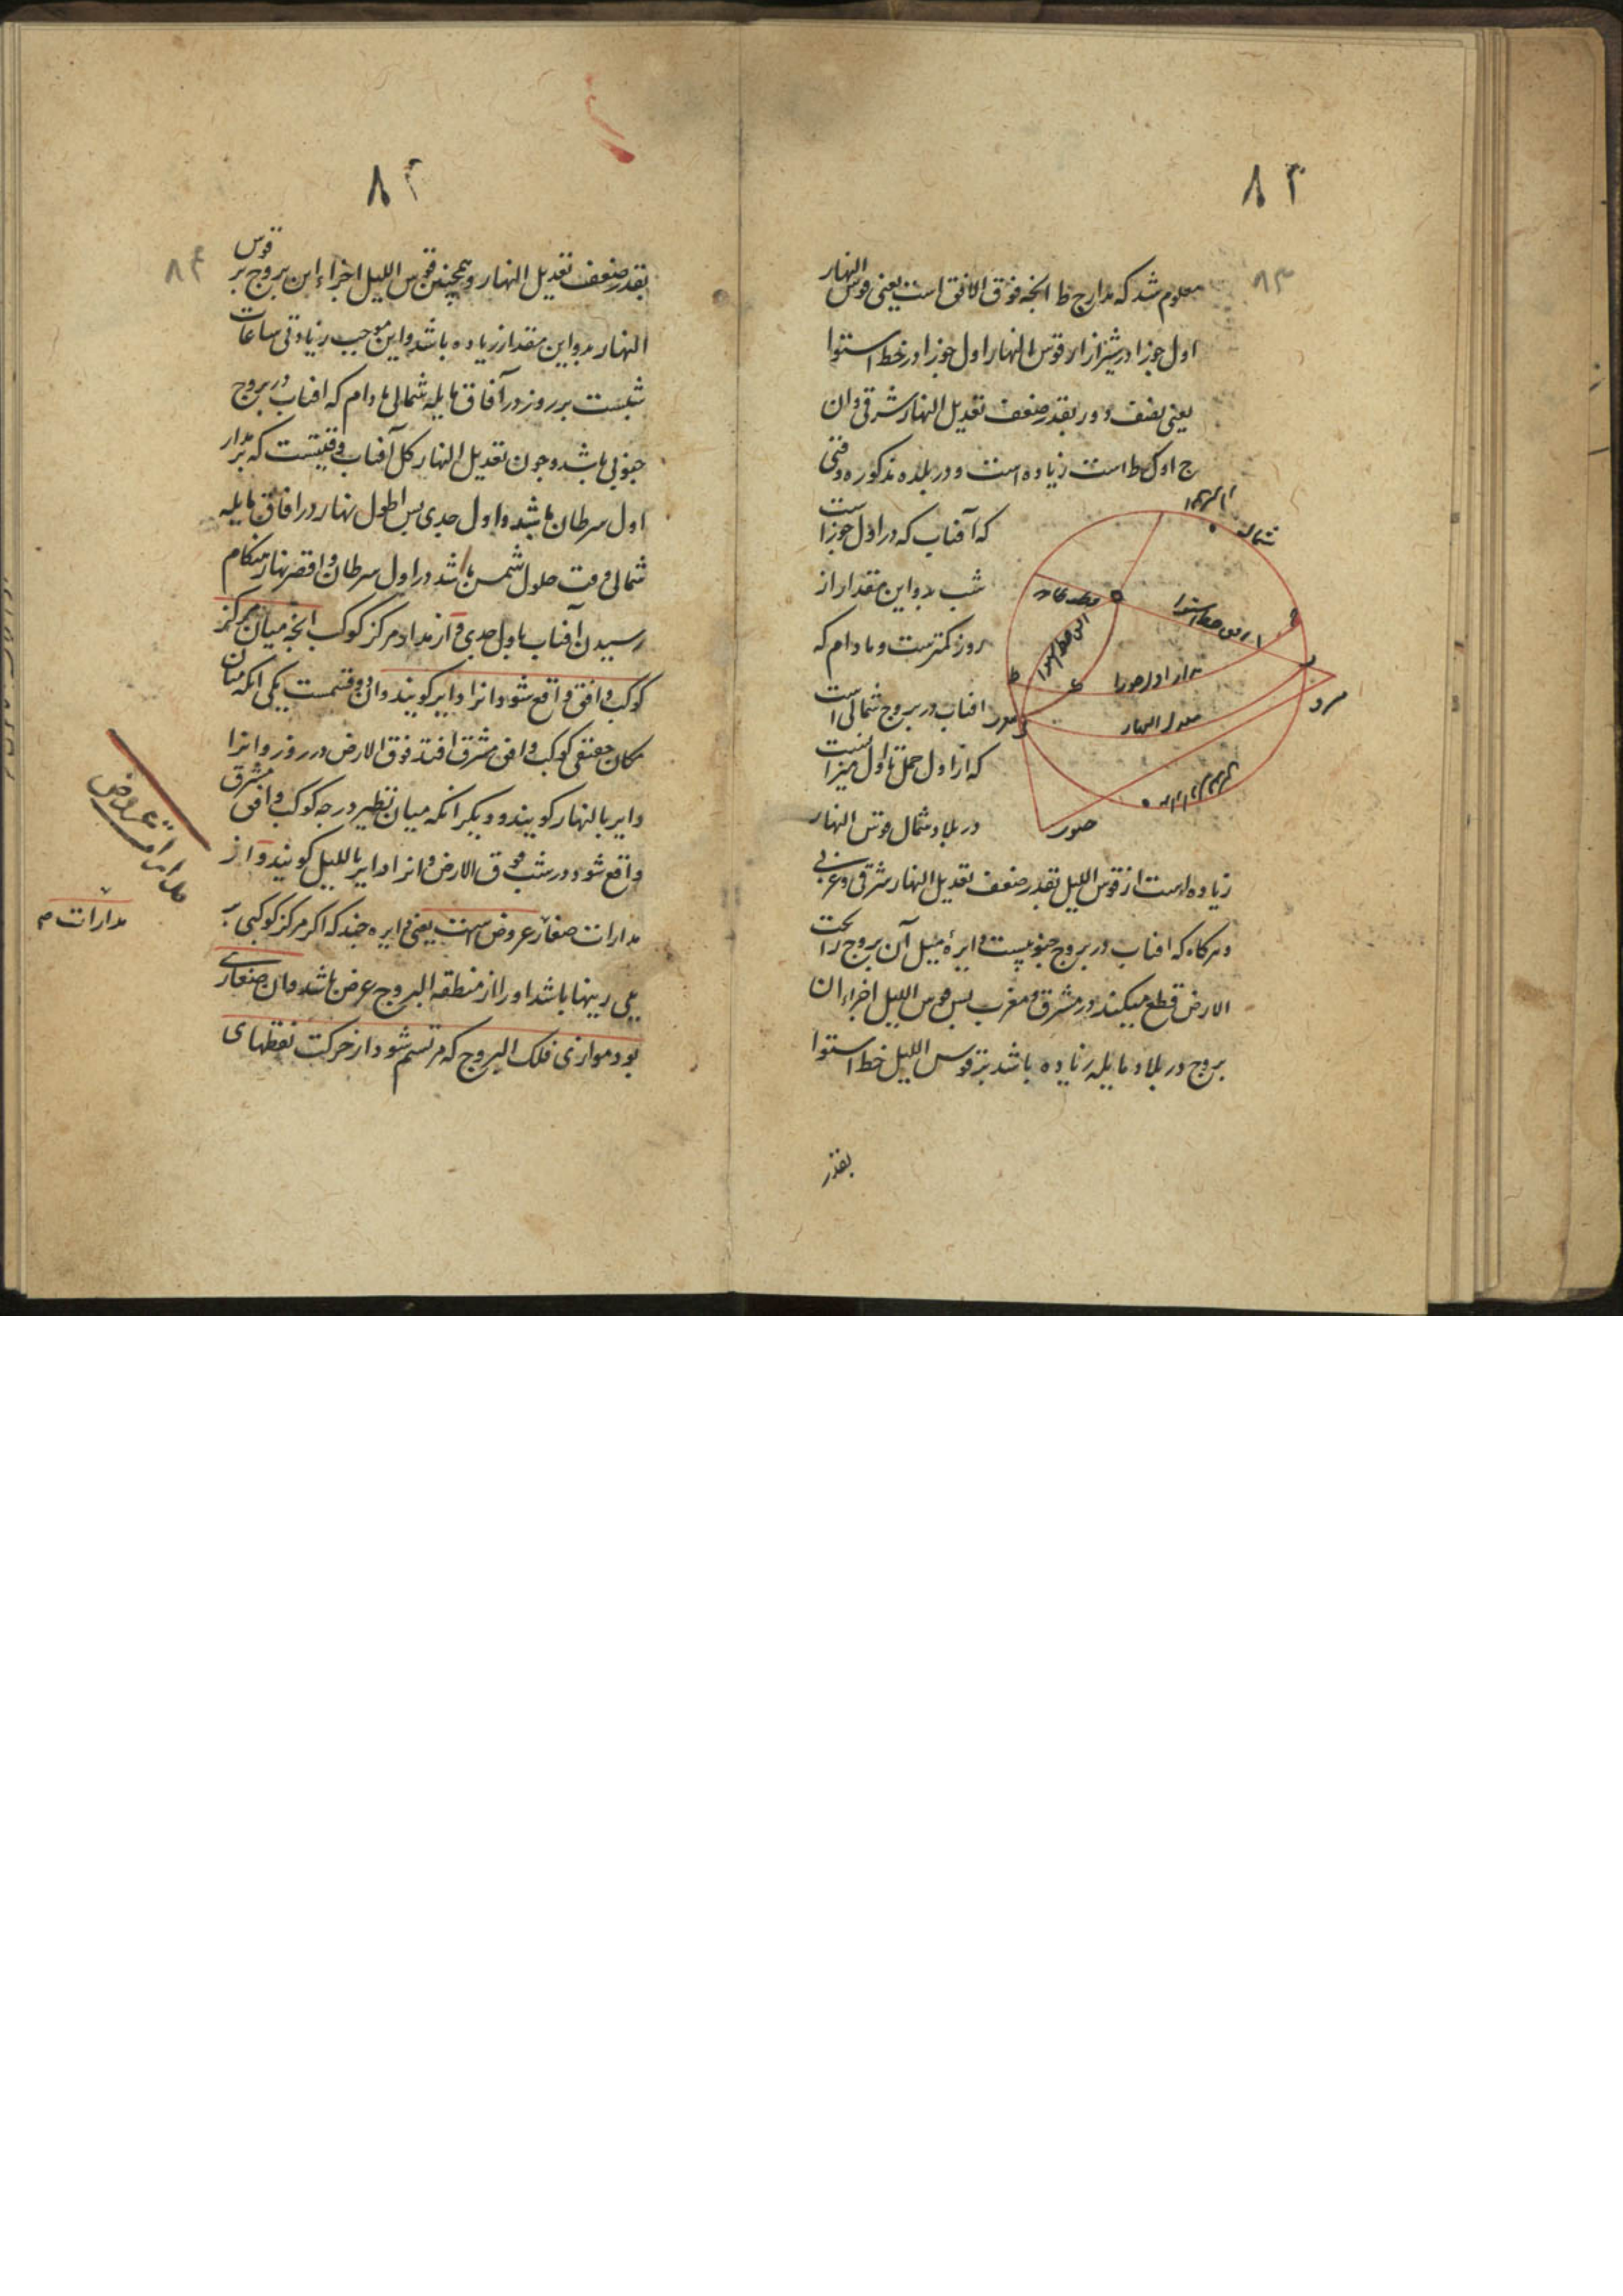 ۸۳
۸۳
معلوم شد که مدار ج ط انچه فوق الافق است یعنی قوس النهار
اول جوزا در شیراز از قوس النهار اول جوزا در خط استوا
یعنی نصف دور بقدر ضعف تعدیل النهار شرقی و ان
ج اوک ط است زیاده است و در بلده مذکوره وقتی
که آفتاب که در اول جوزا است
شب بدو این مقدار از
روز کمترست و مادام که
افتاب در بروج شمالی است
که از اول حمل تا اول میزا نست
در بلاد شمال قوس النهار
زیاده است از قوس اللیل بقدر ضعف تعدیل النهار شرقی و غربی
و هرکاه که افتاب در بروج جنوبیست دایرهٔ میل آن بروج را تحت
الارض قطع میکند در مشرق و مغرب پس قوس اللیل اجزاء ان
بروج در بلاد مایله زیاده باشد بر قوس اللیل خط استوا
بقدر
شمال
افق خط استوا
مدار اول جوزا
معدل النهار
جنوب
۸۴
۸۴
بقدر ضعف تعدیل النهار و همچنین قوس اللیل اجزاء این بروج بر قوس
النهار بدو این مقدار زیاده باشد و این موجب زیادتی ساعات
شبست بر روز در آفاق مایله شمالی مادام که افتاب در بروج
جنوبی باشد و چون تعدیل النهار کل آفتاب وقتیست که بر مدار
اول سرطان باشد و اول جدی پس اطول نهار در افاق مایله
شمالی وقت حلول شمس باشد در اول سرطان و اقصر نهار هنکام
رسیدن آفتاب باول جدی و از مدار مرکز کوکب انچه میان مرکز
کوکب و افق واقع شود انرا دایر کویند و ان دو قسمست یکی انکه میان
مکان حقیقی کوکب و افق مشرق افتد فوق الارض در روز و انرا
دایر بالنهار کویند و دیکر انکه میان نظیر درجه کوکب و افق مشرق
واقع شود در شب فوق الارض و انرا دایر باللیل کویند و از
مدارات صغار عروض است یعنی دایره چند که اکر مرکز کوکبی بر
یکی ازینها باشد او را از منطقه البروج عرض باشد و ان صغاری
بود موازی فلک البروج که مرتسم شود از حرکت نقطهای
مدارات عروض
مدارات